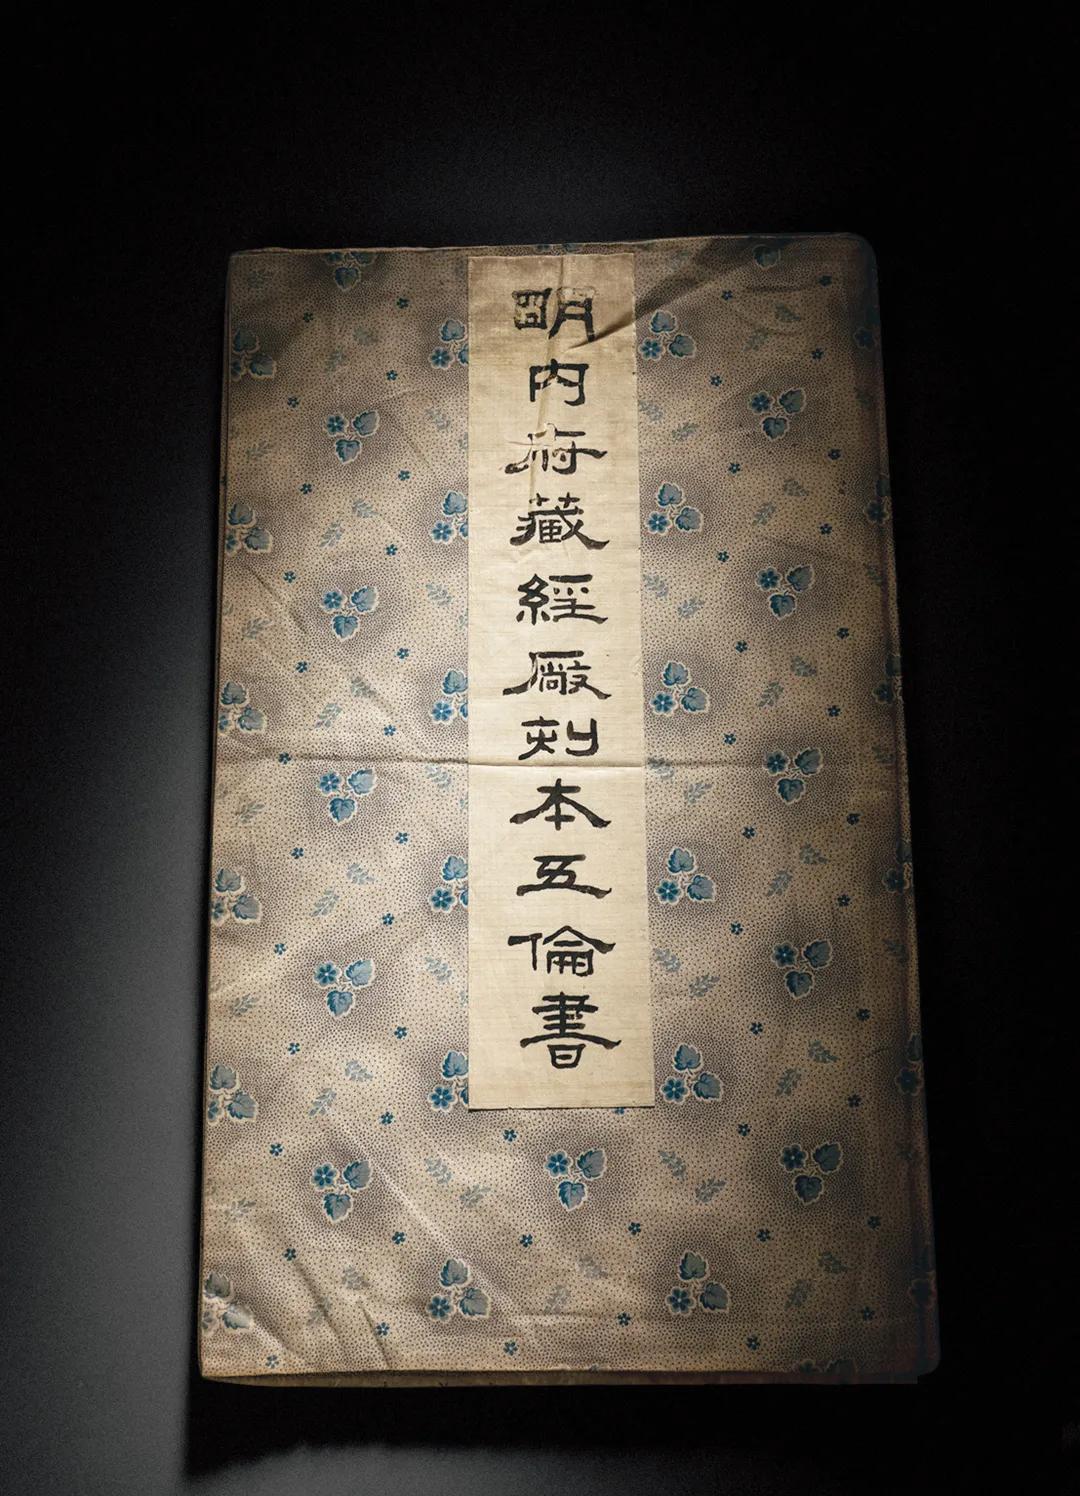 明内府藏經廠刻本五倫書